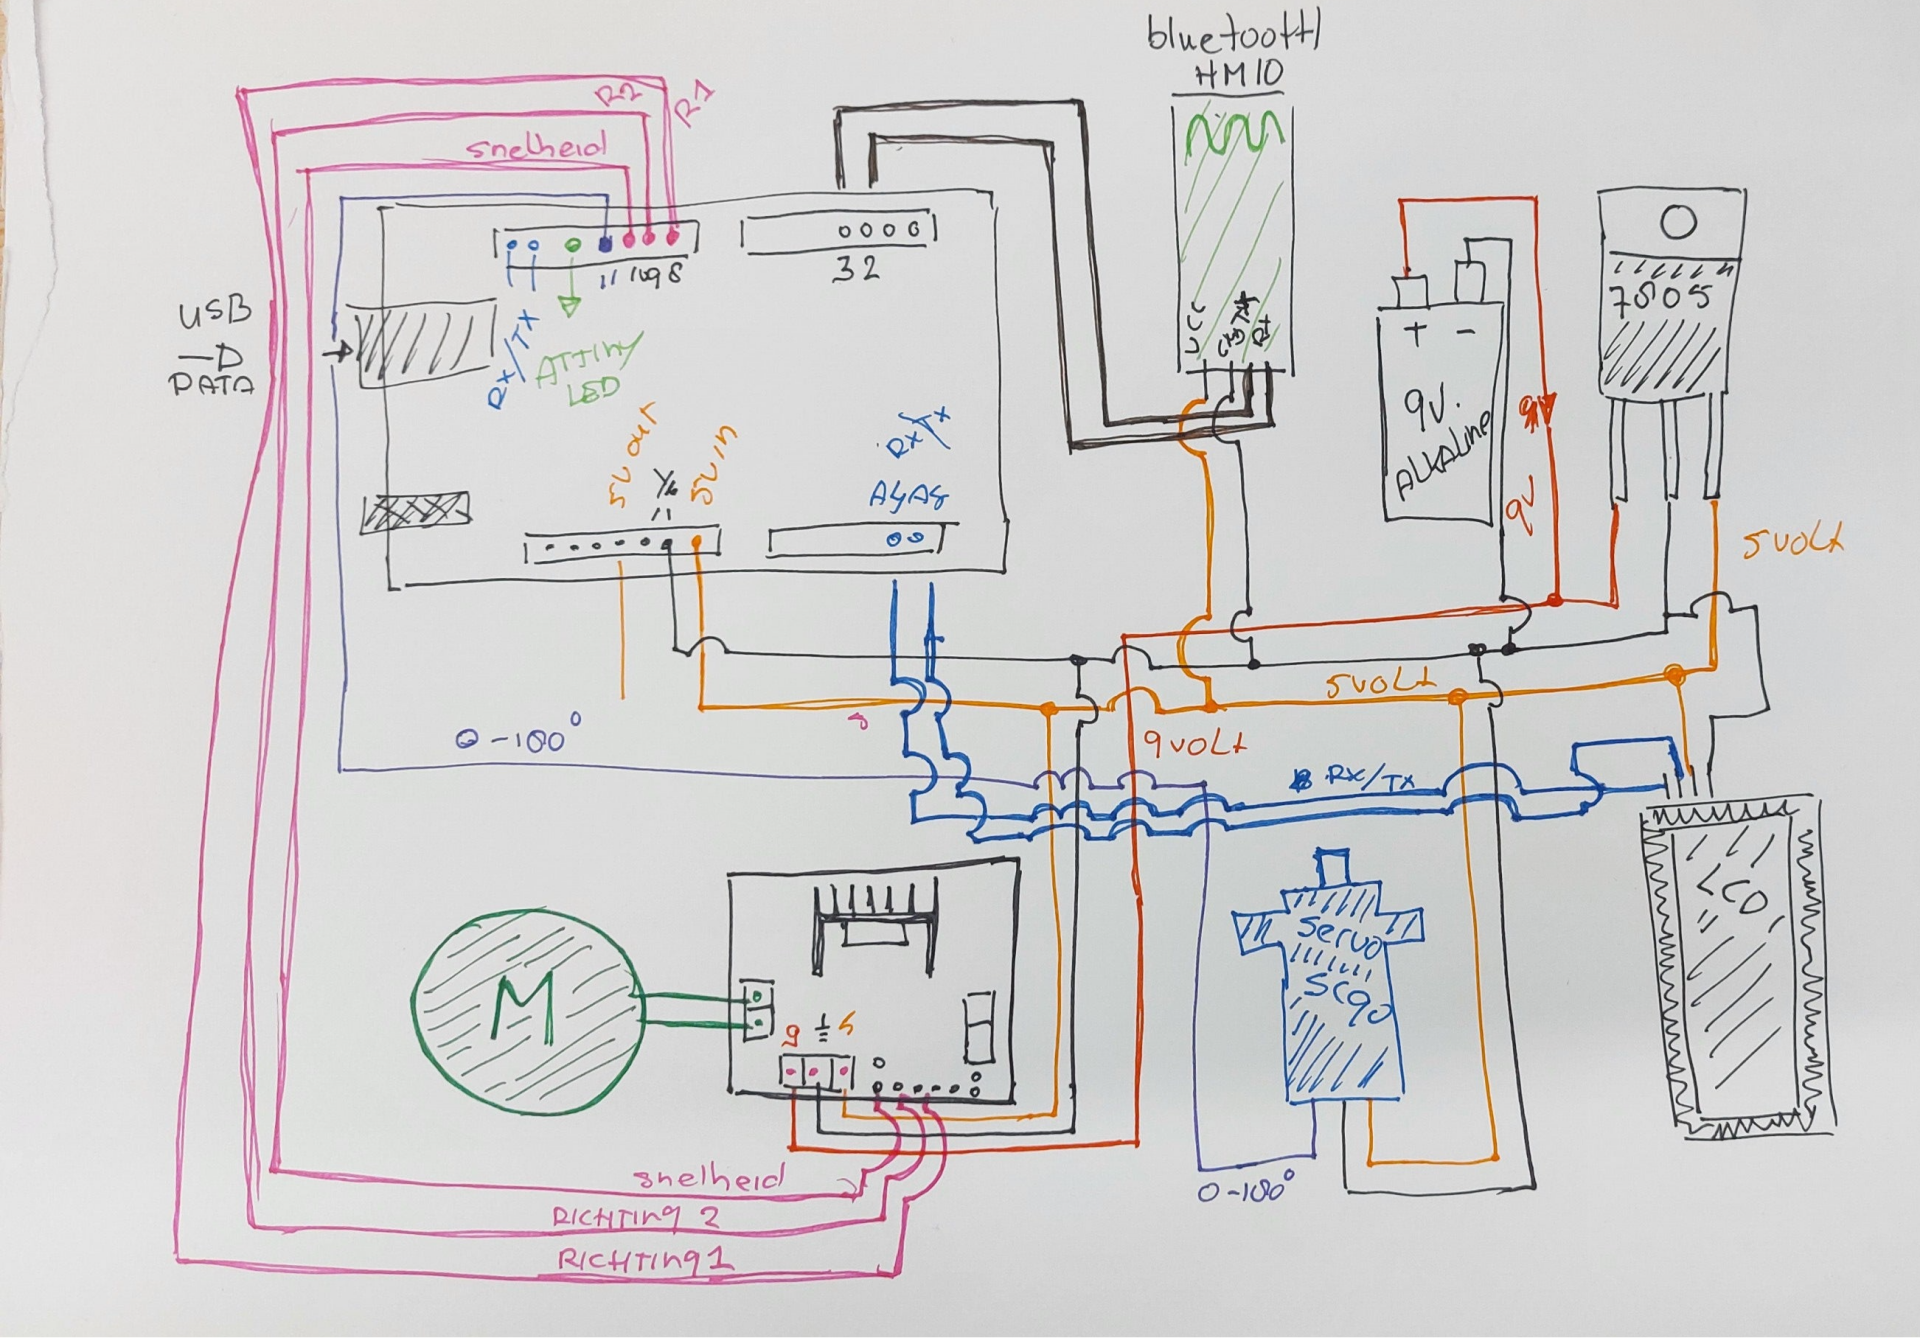 bluetooth
HM10
R2
R1
snelheid
11 10 9 8
32
USB
DATA
RX/TX
ATTiny
LED
VCC
TX
RX
+ -
9V.
ALKALine
9V
9V
7805
5V out
5V in
RX/TX
A4 A5
5 VOLT
5VOLT
9VOLT
0-180°
RX/TX
LCD
M
9 5
Servo
SG90
0-180°
snelheid
RICHTing 2
RICHTing 1